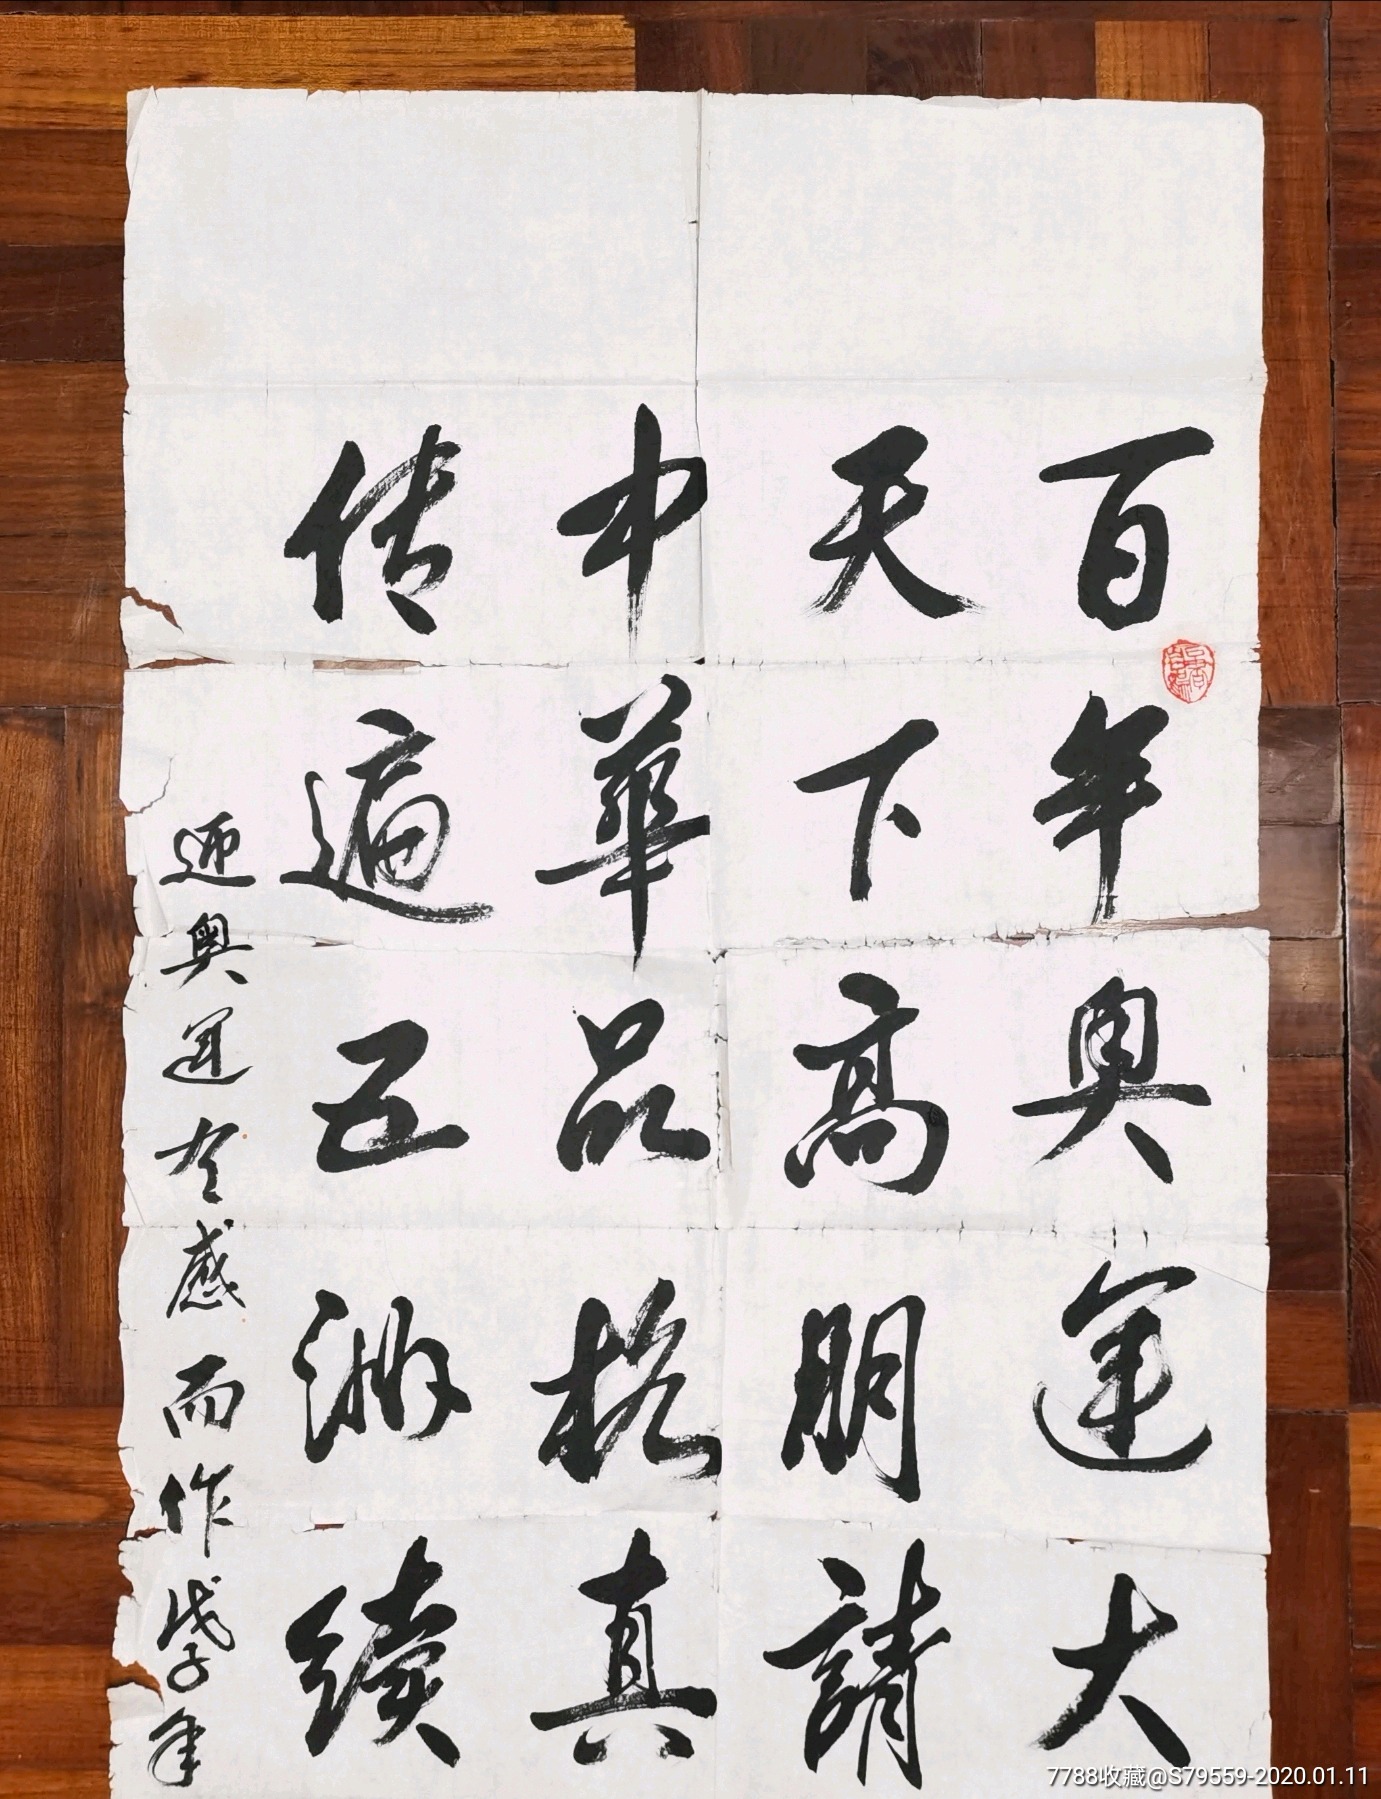 百年奥运大
天下高朋請
中華品格真
传遍五洲續
迎奥运有感而作 戊子年
7788收藏@S79559-2020.01.11